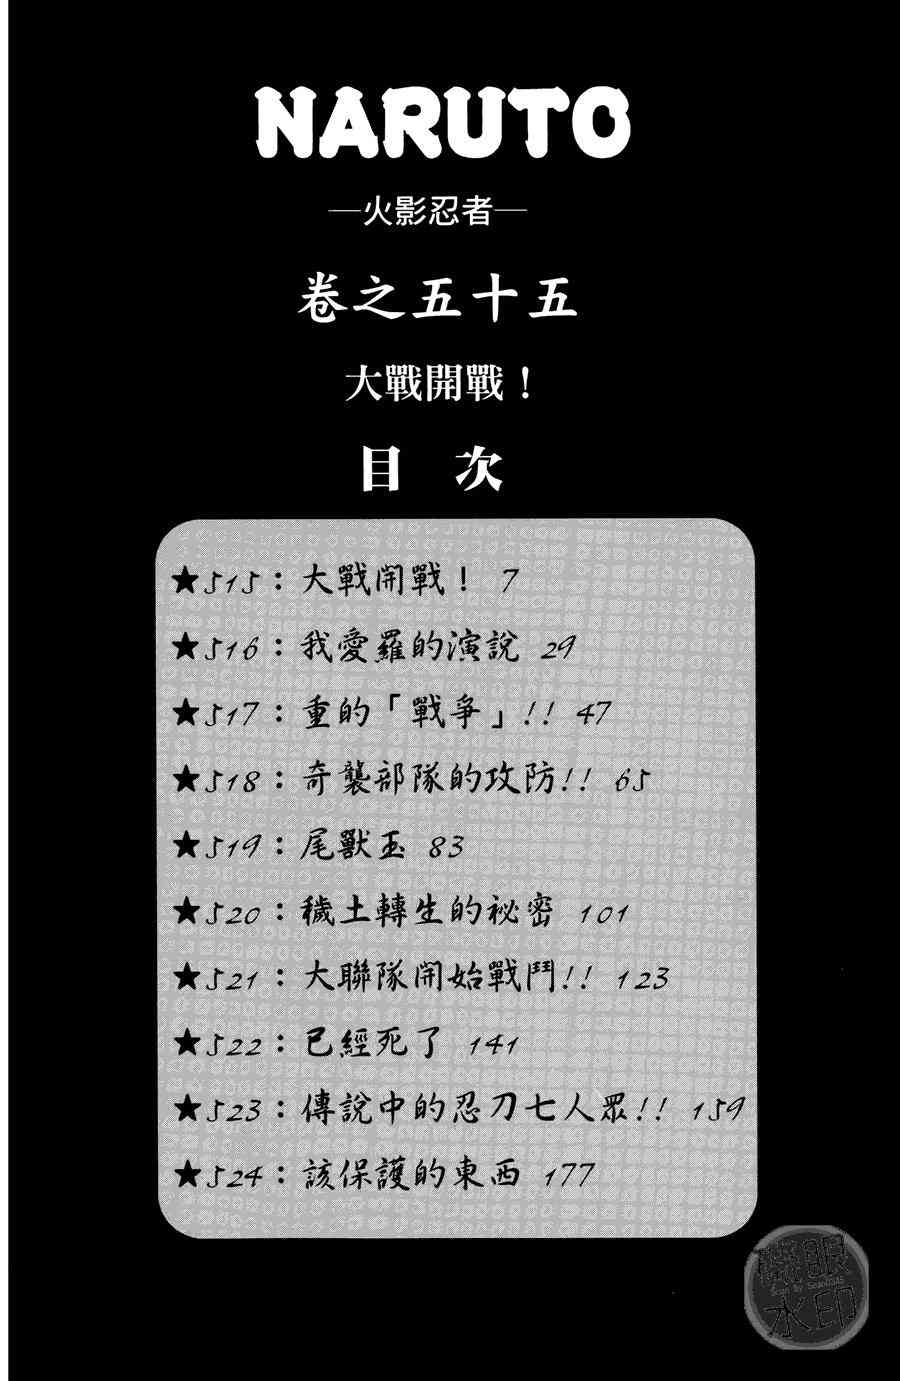 NARUTO
—火影忍者—
卷之五十五
大戰開戰！
目 次
★515：大戰開戰！ 7
★516：我愛羅的演說 29
★517：重的「戰爭」!! 47
★518：奇襲部隊的攻防!! 65
★519：尾獸玉 83
★520：穢土轉生的祕密 101
★521：大聯隊開始戰鬥!! 123
★522：已經死了 141
★523：傳說中的忍刀七人眾!! 159
★524：該保護的東西 177
眼
水印